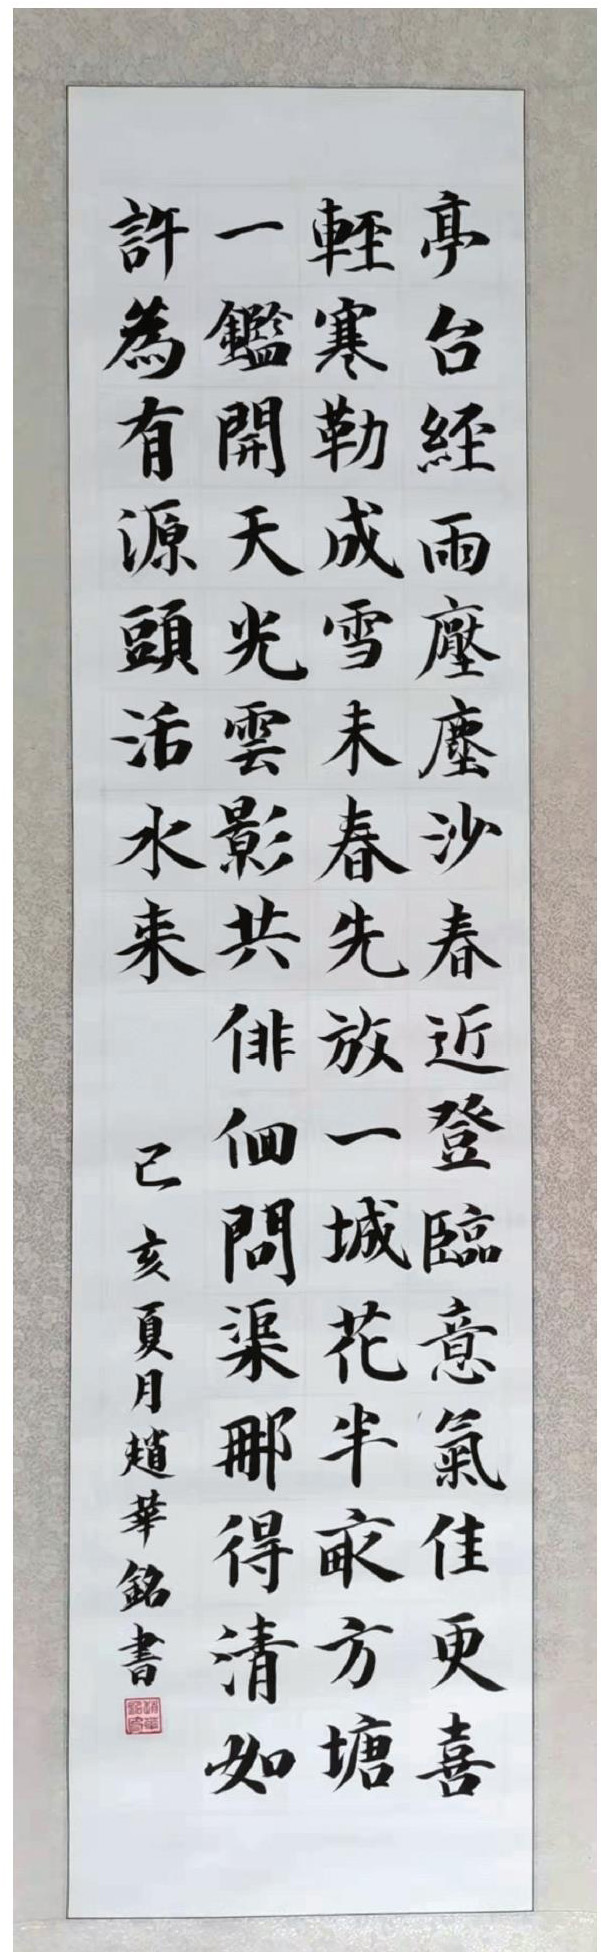 亭台經雨壓塵沙春近登臨意氣佳更喜
輕寒勒成雪未春先放一城花半畝方塘
一鑑開天光雲影共俳佪問渠那得清如
許為有源頭活水来
己亥夏月趙華銘書